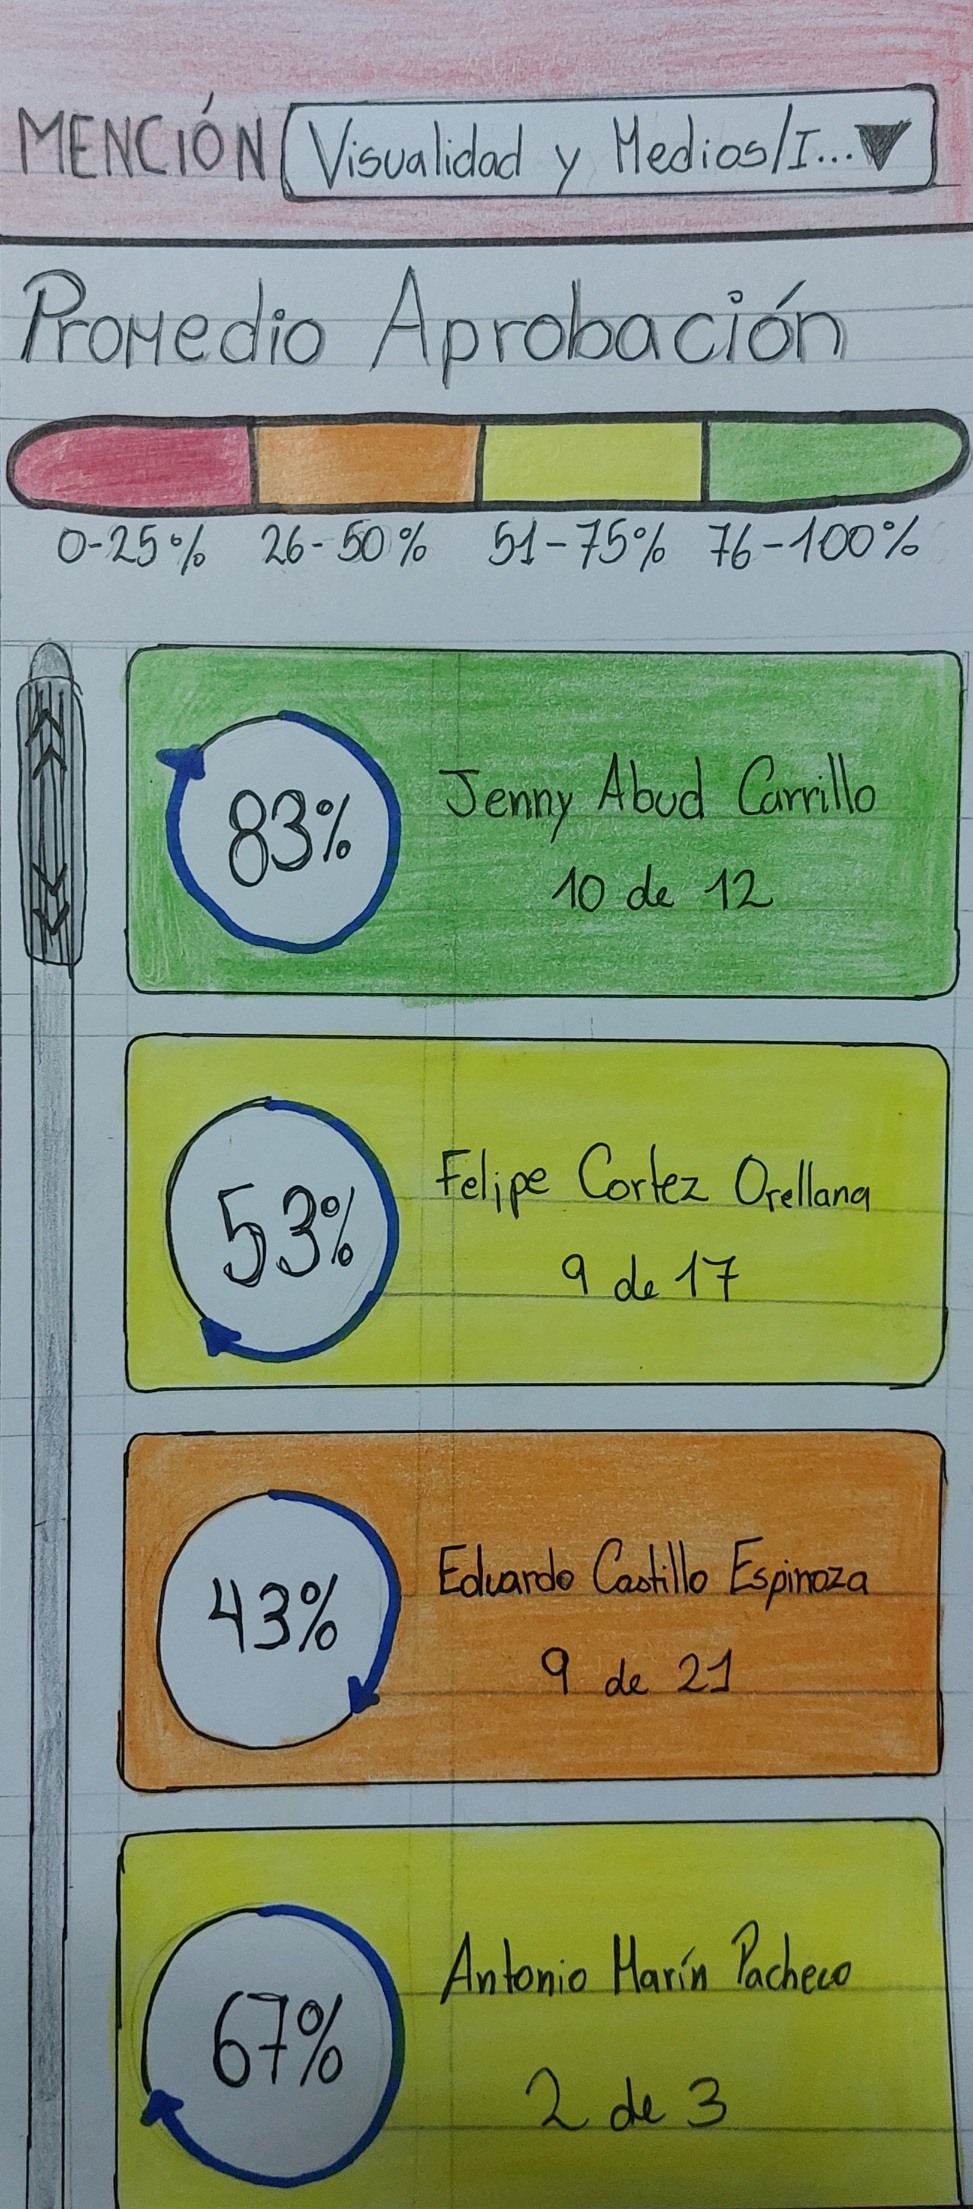 MENCIÓN Visualidad y Medios/I...
Promedio Aprobación
0-25% 26-50% 51-75% 76-100%
83%
Jenny Abud Carrillo
10 de 12
53%
Felipe Cortez Orellana
9 de 17
43%
Eduardo Castillo Espinoza
9 de 21
67%
Antonio Marín Pacheco
2 de 3